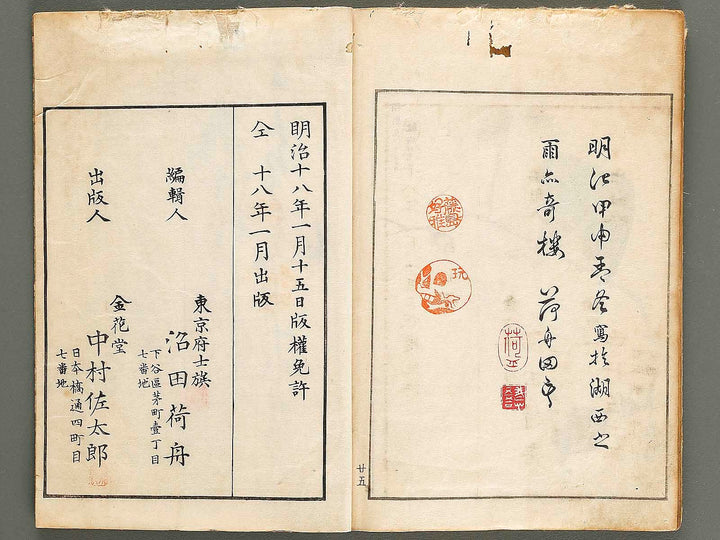 明治甲申孟冬寫於湖西之
雨亦奇樓 荷舟田
玩
荷
廿五
明治十八年一月十五日版權免許
仝 十八年一月出版
編輯人
東京府士族
沼田荷舟
下谷區茅町壹丁目
七番地
出版人
金花堂
中村佐太郎
日本橋通四町目
七番地